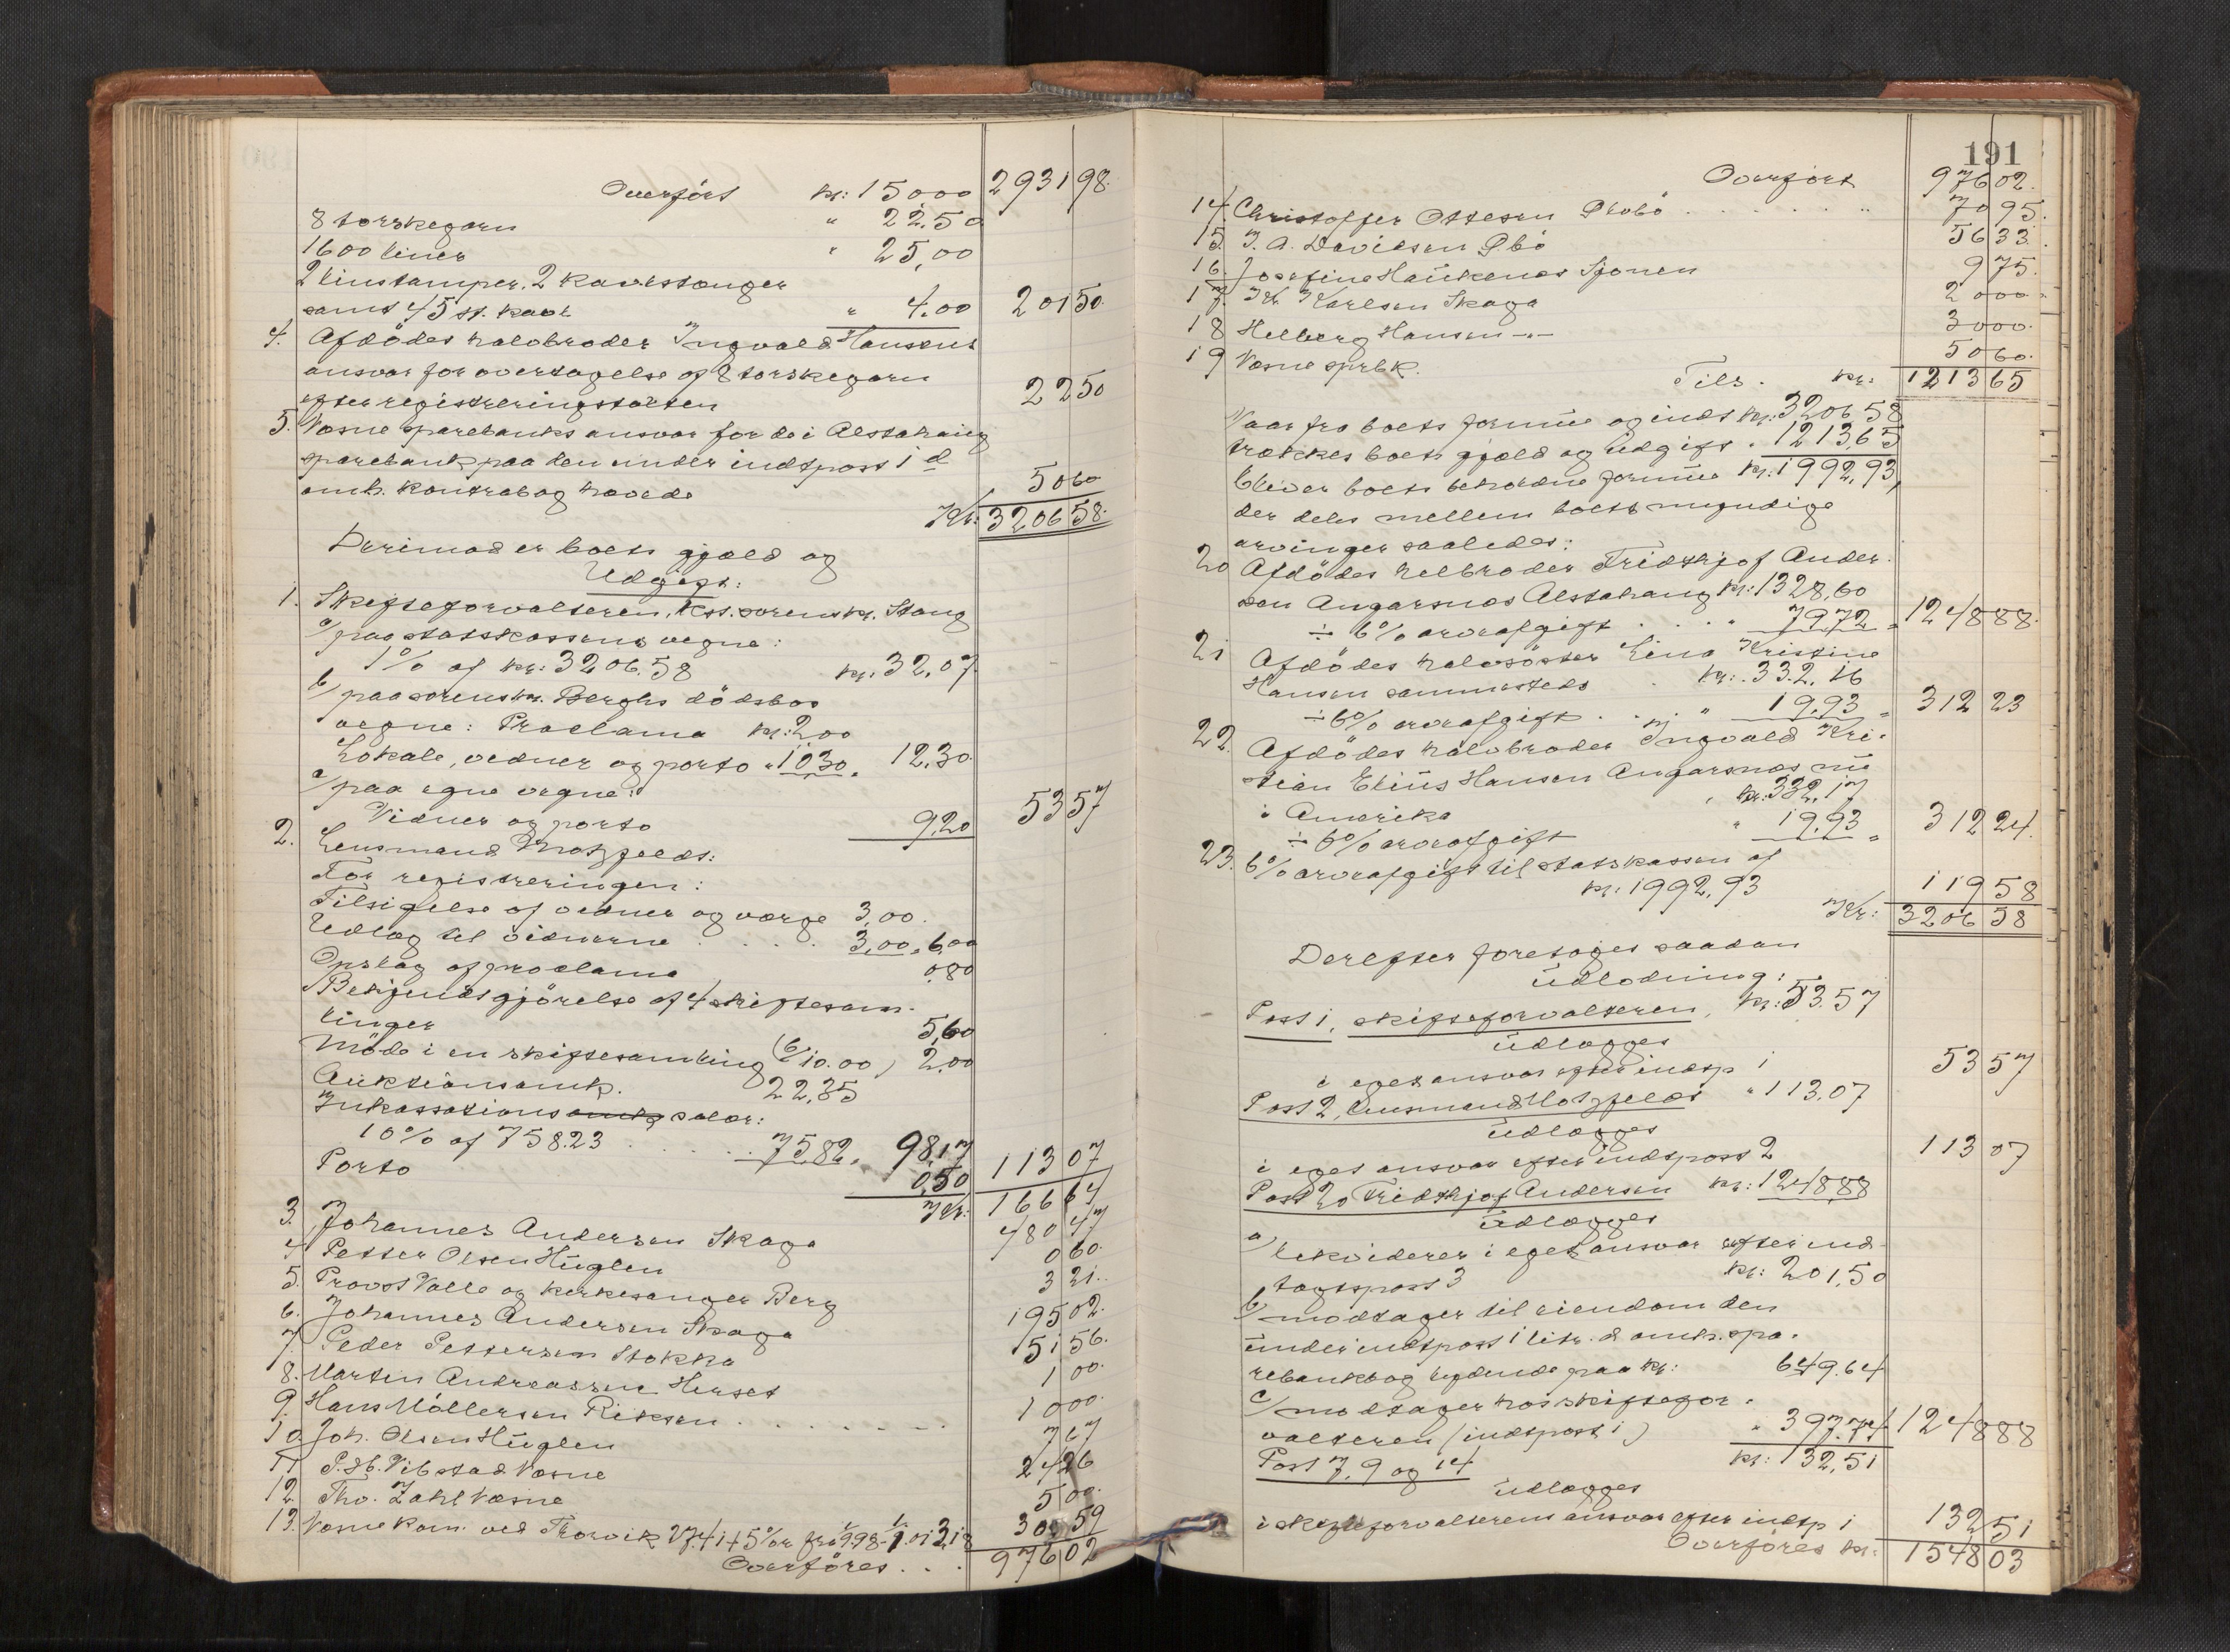 Overført kr: 150,00 2931 98.
8 torskegarn " 22.50
1600 liner " 25,00
2 linstamper, 2 kavlstænger
samt 45 st. kavl " 4.00 201 50.
4. Afdödes halvbroder Ingvald Hansens
ansvar for overtagelse af 8 torskegarn
efter registreringstaxten 22 50
5. Næsne sparebanks ansvar for de i Alstahaug
sparebank paa den under indtpost 1 d
omh. kontrabog hævede 50 60
Kr: 3206 58.
Derimod er boets gjæld og
Udgift:
1. Skifteforvalteren, kst. sorenskr. Stang
a/ paa statskassens vegne:
1% af kr: 3206.58 kr. 32,07
b/ paa sorenskr. Berghs dödsbos
vegne: Proclama kr: 2,00
Lokale, vidner og porto " 10.30 " 12,30.
c/ paa egne vegne:
Vidner og porto 9,20 53 57
2. Lensmand Motzfeldt:
For registreringen:
Tilsigelse af vidner og værge 3,00.
Udlæg til vidnerne . . . . 3,00 " 6,00
Opslag af proclama 0,80
Bekjendtgjörelse af 4 skiftesam-
linger 5,60
Möde i en skiftesamling (b/ 10.00) 2,00
Auktionsomk. 22,35
Inkassations omk. salær:
10% af 758.23 . . . . 75.82 " 98,17
Porto 0,50 113 07
Kr: 166 64
3. Johannes Andersen Skaga 480 47
4 Petter Olsen Huglen 0 60.
5. Provst Valle og kirkesanger Berg 3 21..
6. Johannes Andersen Skaga 195 02.
7 Peder Pettersen Stokka 51 56.
8. Morten Andreassen Herset 1 00.
9. Hans Möllersen Riksen . . . . . . . 10 00.
10. Joh. Olsen Huglen 7 67
11 P. Vibstad Næsne 24 26
12 Thv. Zahl Næsne 5 00.
13. Næsne kom. ved Thorvik 30 59
Overföres . . . 976 02

191
Overfört 976 02.
14. Christoffer Ottesen . . . . . . 70 95.
15. J. A. Davidsen 56 33.
16. Josefine Haukenæs Sjonen 9 75.
17. Kr. Karlsen Skaga 20 00
18 Helberg Hansen -"- 30 00.
19 Næsne sprbk. 50 60.
Tils. kr: 1213 65
Naar fra boets formue og indt kr: 3206.58
trækkes boets gjæld og udgift " 1213,65
bliver boets beholdne formue kr: 1992,93,
der deles mellem boets myndige
arvinger saaledes:
20 Afdödes helbroder Fridthjof Ander-
sen Angarsnæs Alstahaug kr: 1328,60
÷ 6% arveafgift . . . " 79.72 " 1248 88.
21 Afdödes halvsöster Lina Kristine
Hansen sammesteds . kr: 332.16
÷ 6% arveafgift . . " 19.93 " 312 23
22. Afdödes halvbroder Ingvald Kri-
stian Elius Hansen Angarsnæs nu
i Amerika kr: 332,17
÷ 6% arveafgift " 19.93 " 312 24.
23. 6% arveafgift til statskassen af
kr: 1992,93 119 58
Kr: 3206 58
Derefter foretoges saadan
udlodning:
Post 1, skifteforvalteren, kr: 53.57
udlægges
i eget ansvar efter indtp 1 53 57
Post 2, lensmand Motzfeldt " 113.07
udlægges
i eget ansvar efter indtpost 2 113 07
Post 20 Fridthjof Andersen kr: 1248.88
udlægges
a/ likviderer i eget ansvar efter ind-
tægtspost 3 kr: 201,50
b/ modtager til eiendom den
under indtpost 1 litr. d omh. spa-
rebankbog lydende paa kr: 649.64
c/ modtager hos skiftefor-
valteren (indtpost 1) " 397.74 1248 88
Post 7, 9 og 14 kr: 132,51
udlægges
i skifteforvalterens ansvar efter indtp 1 132 51
Overföres kr: 1548 03